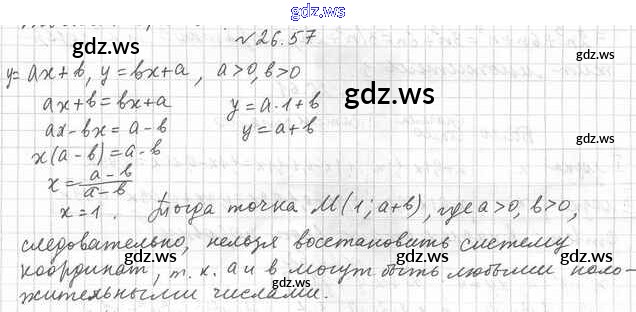 gdz.ws
gdz.ws
№26.57
y=ax+b, y=bx+a, a>0, b>0
gdz.ws
ax+b=bx+a y=a·1+b
ax-bx=a-b y=a+b
x(a-b)=a-b
x=a-b/a-b
x=1. Тогда точка M(1;a+b), где a>0, b>0,
gdz.ws
следовательно, нельзя восстановить систему
координат, т.к. a и b могут быть любыми поло-
жительными числами.
gdz.ws
gdz.ws